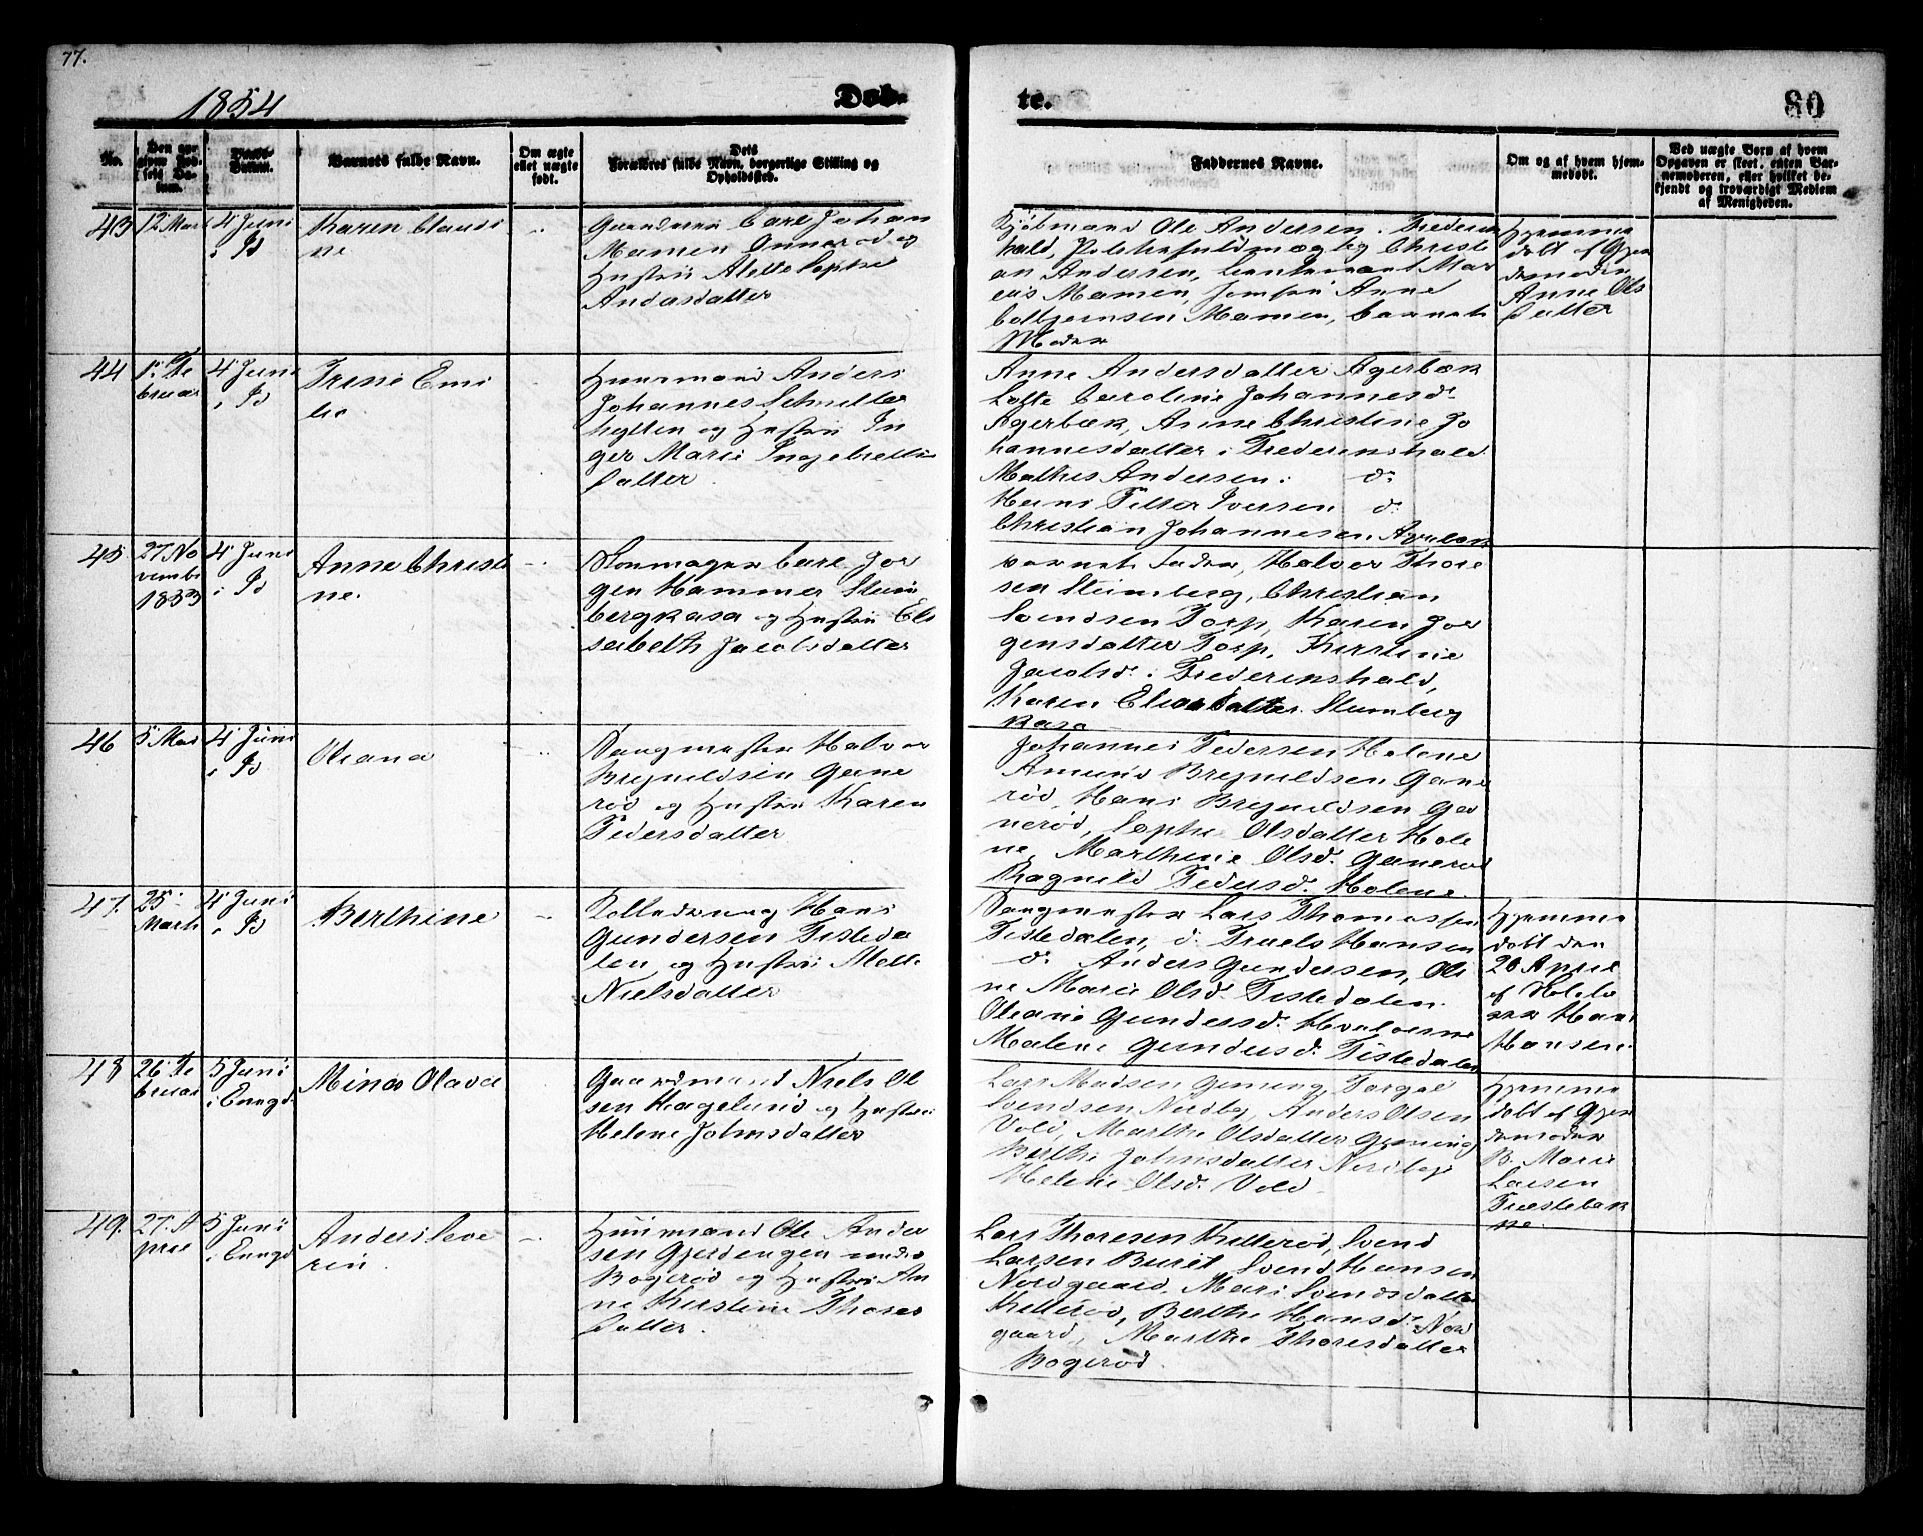 77.
1854
Døb-
te.
80
No.
Den angivne Fødsels Datum.
Daabs Datum.
Barnets fulde Navn.
Om ægte
ellet uægte
født.
Dets
Forældres fulde Navn, borgerlige Stilling og
Opholdssted.
Faddernes Navne.
Om og af hvem hjem-
medøbt.
Ved uægte Born af hvem
Opgaven er skeet, enten Bar-
nemoderen, eller hvilket be-
kjendt og troværdigt Medlem
af Menigheden.
43
12 Mars
4 Juni
i Id
Karen Claudi
ne
Carl Johan
Mamen Önnerød og
Hustru Alette Sophie
Andersdatter
Kjøbmand Ole Andersen i Frederiks
hald, Politiefuldmægtig Christi
an Andersen, Leutenant Mar
cus Mamen, Jomfru Anne
Colbjørnsen Mamen, Barnets
Moder
Hjemme
døbt af Gjor
demoder
Anne Ols
datter
44
1ste Fe
bruar
4 Juni
i Id
Irene Emi
lie
Huusmand Anders
Johannes
og Hustru In
ger Marie Ingebretts
datter
Anne Andersdatter Agerbæk
Caroline Johannesd.
Agerbæk, Anne Christine Jo
hannesdatter i Frederikshald
Mathis Andersen d.
Hans Petter Iversen d.
Christian Johannesen Agerbæk
45
27 No
vembr
1853
4 Juni
i Id
Anne Christi
ne.
Skomager Carl Jør
gen Hammer Steen
bergkasa og Hustru Eli
sabeth Jacobsdatter
Barnets Fader, Halvor Thore
sen Stenberg, Christian
Svendsen Torp, Karen Jør
gensdatter Torp, Kirstine
Jacobsd. i Frederikshald,
Karen Eliasdatter Stenberg
kasa
46
5 Mai
4 Juni
i Id
Oleana
Saugmester Halvor
Brynildsen Gane
rød og Hustru Karen
Pedersdatter
Johannes Pedersen Holene
Amund Brynildsen Gane
rød, Hans Brynildsen Ga
nerød, Sophie Olsdatter Hole
ne, Marthine Olsd. Ganerød
Ragnild Pedersd. Holene.
47.
25
Marts
4 Juni
i Id
Berthine
Hans
Gundersen Tisteda
len og Hustru Mette
Nielsdatter
Saugmester Lars Thomassen
Tistedalen, d. Truels Hansen
d. Anders Gundersen, Oli
ne Marie Olsd. Tistedalen.
Oleane Gundersd.
Malene Gundersd. Tistedalen
Hjemme
døbt den
20 April
af
Hans
Hansen.
48
26 Fe
bruar
5 Juni
i Enngd.
Mina Olava
Gaardmand Niels Ol
sen Hagelund og Hustru
Helene Johnsdatter
Lars Madsen
Svendsen Nordby, Anders Olsen
Vold, Marthe Olsdatter
Berthe Johnsdatter Nordby
Helene Olsd. Vold
Hjemme
døbt af Gjor
demoder
B. Marie
Larsen
Præstebak
ke.
49.
27. A
pril
5 Juni
i Enngd
Anders Seve
rin
Huusmand Ole Ander
sen Gjerdengen under
Bøgerød og Hustru An
ne Kirstine Thores
datter.
Lars Thoresen Killerød, Svend
Larsen Svend Hansen
Nordgaard, Mari Svendsdatter
Killerød, Berthe Hansd. Nor
gaard, Marthe Thoresdatter
Bøgerød.